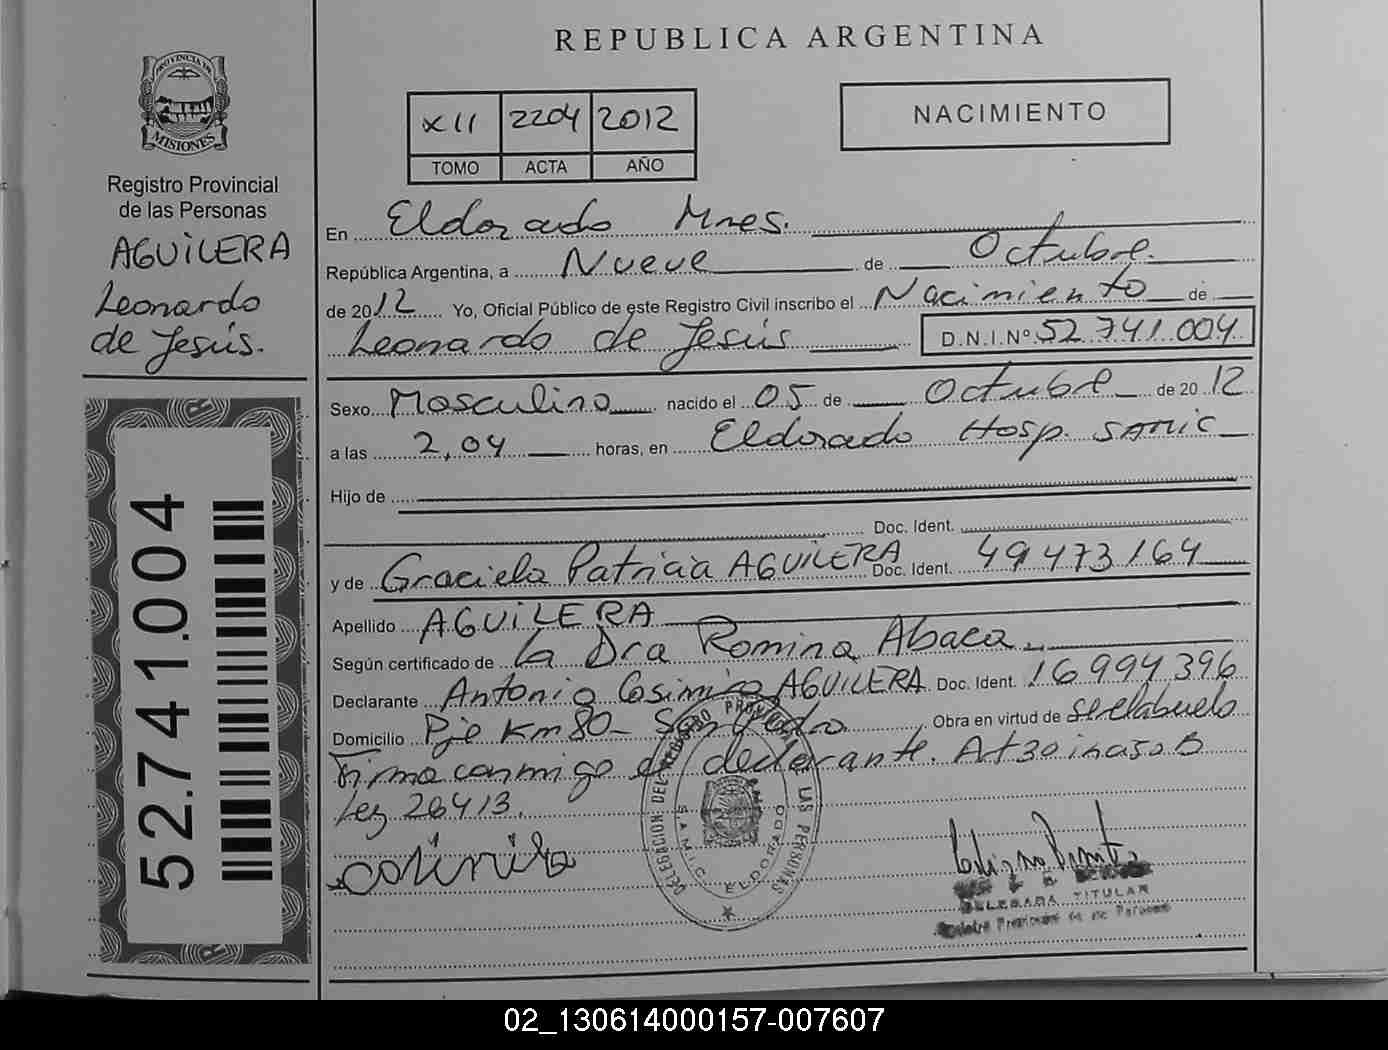 REPUBLICA ARGENTINA
PROVINCIA DE
MISIONES
Registro Provincial
de las Personas
AGUILERA
Leonardo
de Jesús.
52.741.004
XII 2204 2012
TOMO ACTA AÑO
NACIMIENTO
En Eldorado Mnes.
República Argentina, a Nueve de Octubre.
de 2012 Yo, Oficial Público de este Registro Civil inscribo el Nacimiento de
Leonardo de Jesús D.N.I.Nº 52.741.004
Sexo Masculino nacido el 05 de Octubre de 2012
a las 2,04 horas, en Eldorado Hosp. SAMIC
Hijo de
Doc. Ident.
y de Graciela Patricia AGUILERA Doc. Ident. 49473164
Apellido AGUILERA
Según certificado de la Dra Romina Abaca.
Declarante Antonio Casimiro AGUILERA Doc. Ident. 16994396
Domicilio Pje Km 80 - San Pedro Obra en virtud de ser el abuelo
Firma conmigo el declarante. Art 30 inciso B
Ley 26413.
DELEGACION DEL REGISTRO PROVINCIAL LAS PERSONAS
S.A.M.I.C. ELDORADO
DELEGADA TITULAR
02_130614000157-007607